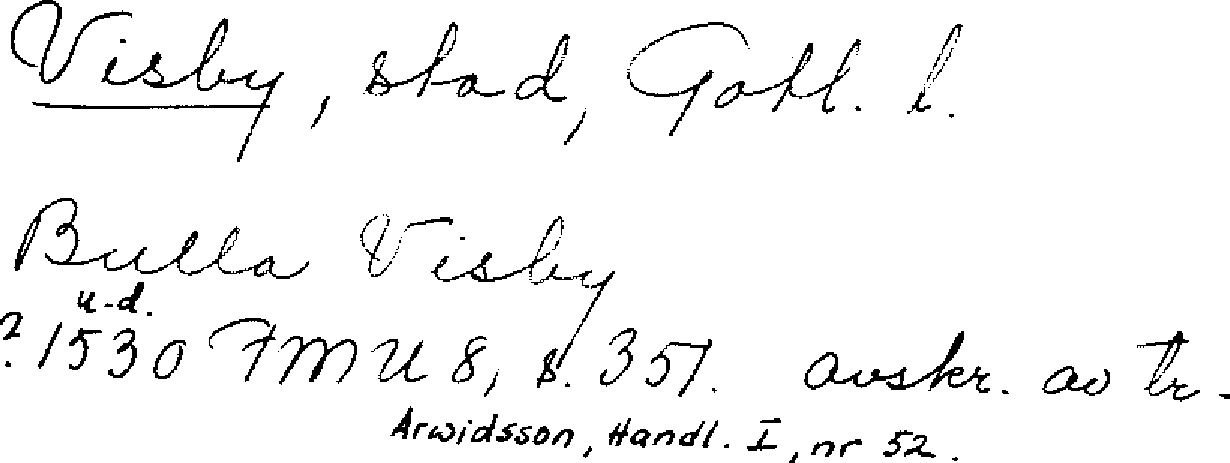 Visby, stad, Gotl. l.
Bulla Visby
u.d.
? 1530 FMU 8, s. 357. avskr. av tr.
Arwidsson, Handl. I, nr 52.